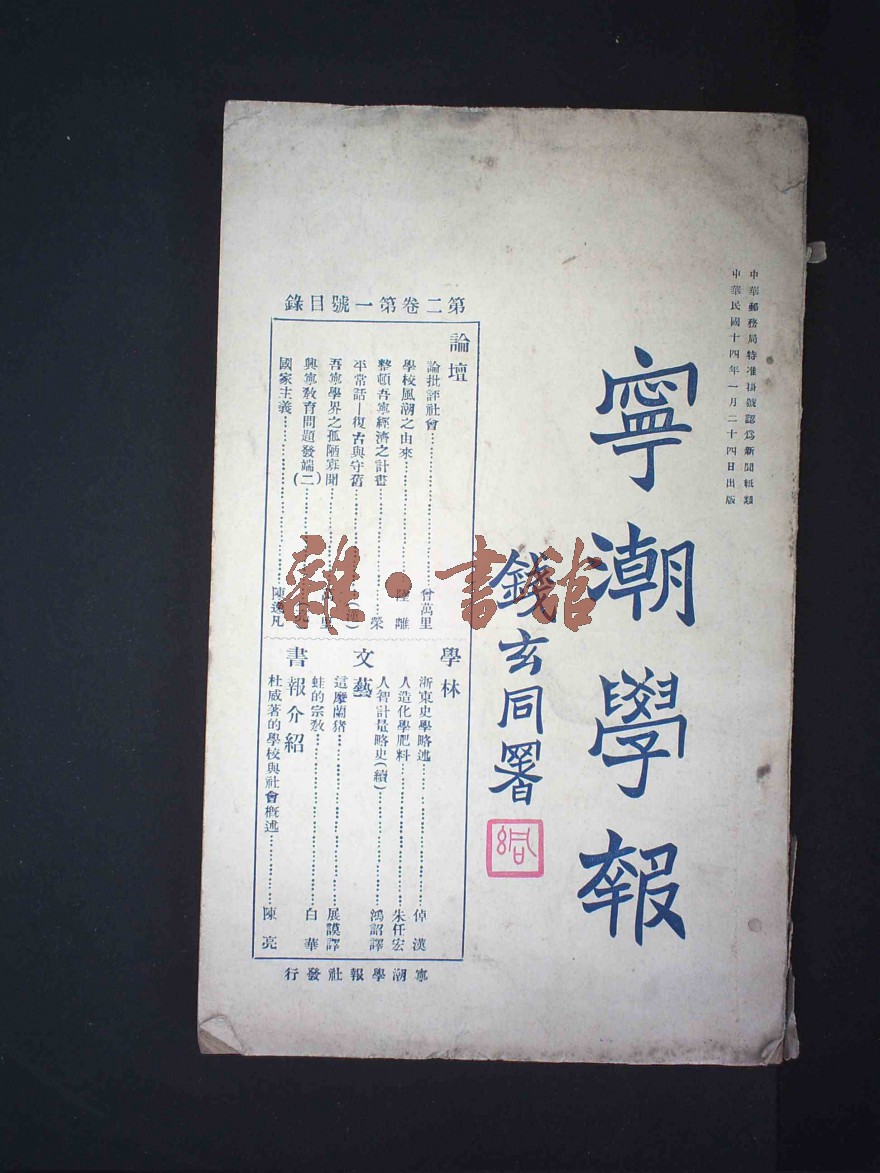 中華郵務局特准掛號認爲新聞紙類
中華民國十四年一月二十四日出版
寧潮學報
錢玄同署
第二卷第一號目錄
論壇
論批評社會 曾萬里
學校風潮之由來 陸離
整頓吾寧經濟之計畫 榮
平常話—復古與守舊
吾寧學界之孤陋寡聞
興寧教育問題發端(二)
國家主義 陳逸凡
學林
浙東史學略述 倬漢
人造化學肥料 朱任宏
人智計量略史(續) 鴻詔譯
文藝
這麼蘭豬 展謨譯
蛙的宗教 白華
書報介紹
杜威著的學校與社會概述 陳亮
寧潮學報社發行
雜·書館